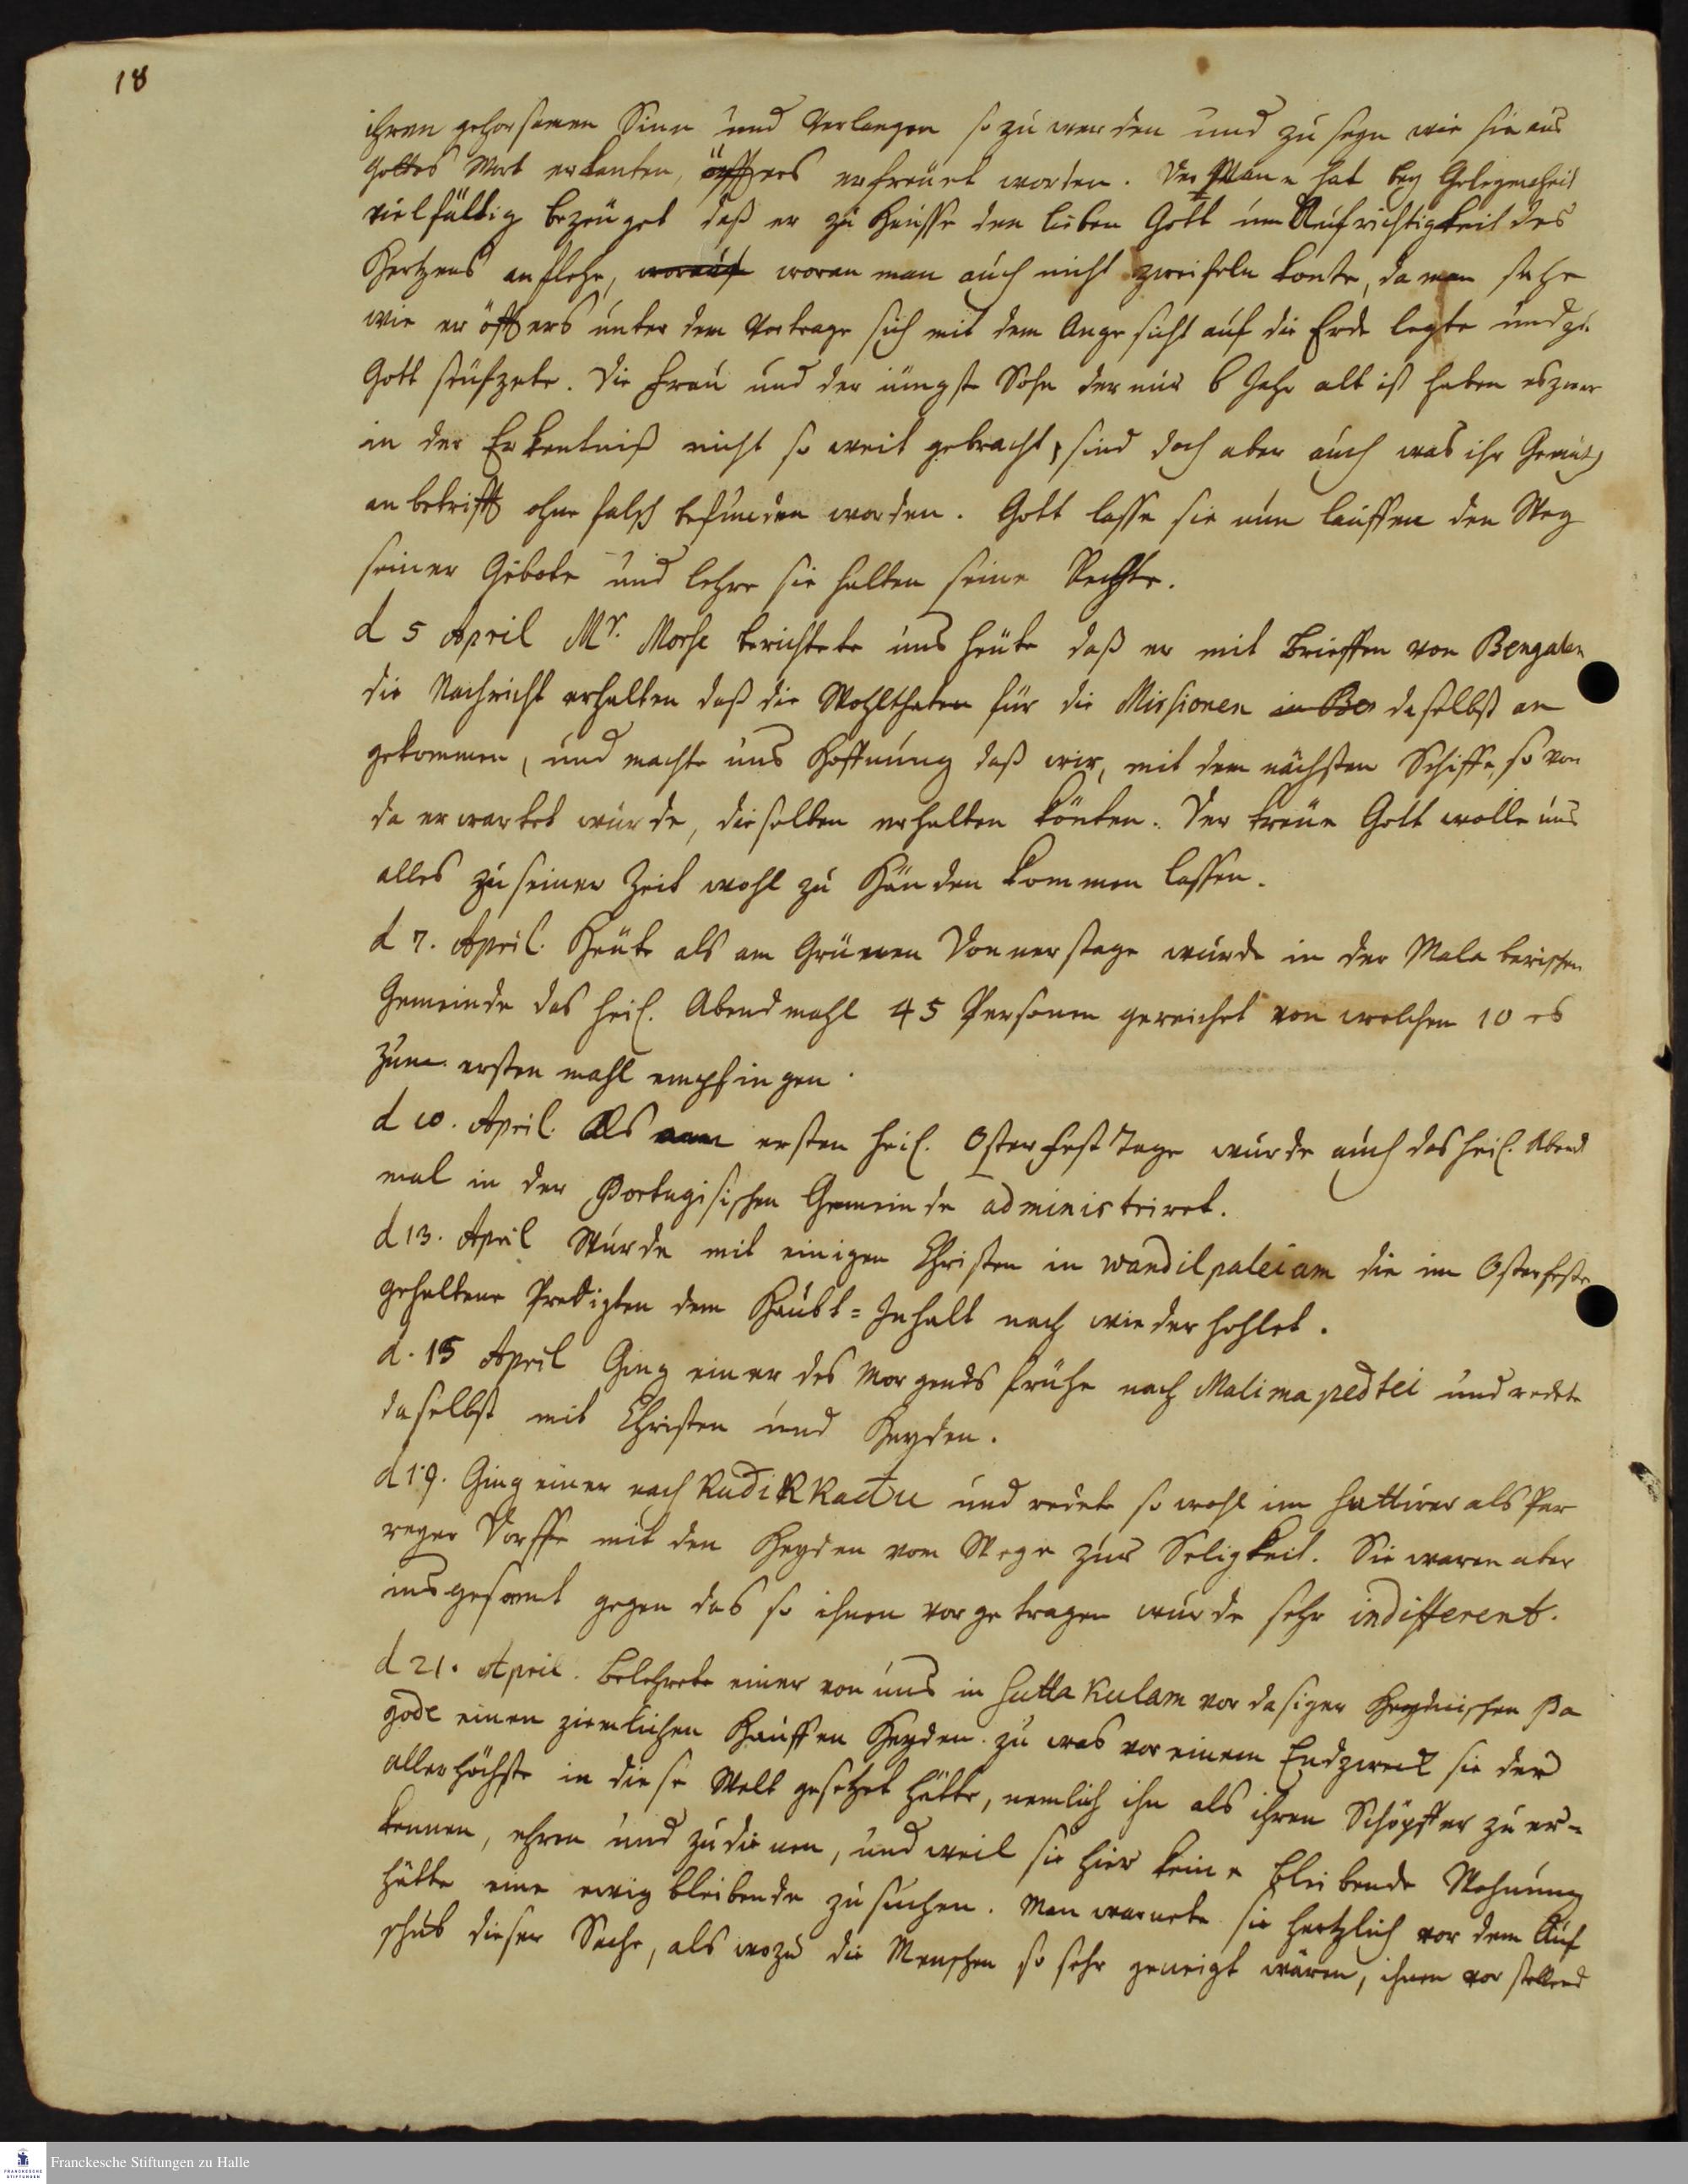 18
ihren gehorsamen Sinn und Verlangen so zu werden und zu seyn wie sie aus
Gottes Wort erkanten, öffters erfreuet worden. Der Mann hat bey Gelegenheit
vielfältig bezeuget daß er zu Hausse den lieben Gott um Aufrichtigkeit des
Hertzens anflehe, worauf woran man auch nicht zweifeln konte, da man sahe
wie er öffters unter dem Vortrage sich mit dem Angesicht auf die Erde legte und zu
Gott seufzete. Die Frau und der jüngste Sohn der nur 6 Jahr alt ist haben es zwar
in der Erkentniß nicht so weit gebracht, sind doch aber auch was ihr Gemüth
anbetrifft ohne falsch befunden worden. Gott lasse sie nun lauffen den Weg
seiner Gebote und lehre sie halten seine Rechte.
d 5 April Mr. Morse berichtete uns heute daß er mit Brieffen von Bengalen
die Nachricht erhalten daß die Wohlthaten für die Missionen in Be daselbst an
gekommen, und machte uns Hoffnung daß wir, mit dem nächsten Schiffe, so von
da erwartet würde, dieselben erhalten könten. Der treue Gott wolle uns
alles zu seiner Zeit wohl zu Händen kommen lassen.
d 7. April. Heute als am Grünen Donnerstage wurde in der Malabarischen
Gemeinde das heil. Abendmahl 45 Personen gereichet von welchen 10 es
zum ersten mahl empfingen.
d 10. April. Als am ersten heil. Osterfest Tage wurde auch das heil. Abend
mal in der Portugisischen Gemeinde administriret.
d 13. April Wurde mit einigen Christen in wandilpaleiam die im Osterfeste
gehaltene Predigten dem Haubt=Inhalt nach wiederhohlet.
d. 15 April Ging einer des Morgends frühe nach Malimapedtei und redete
daselbst mit Christen und Heyden.
d 19. Ging einer nach Kudikkadu und redete so wohl im Suttirer als Par
reyer Dorffe mit den Heyden vom Wege zur Seligkeit. Sie waren aber
insgesamt gegen das so ihnen vorgetragen wurde sehr indifferent.
d 21. April. Belehrete einer von uns in Suttakulam vor dasiger Heydnischen Pa
gode einen ziemlichen Hauffen Heyden. zu was vor einem Endzweck sie der
allerhöchste in diese Welt gesetzet hätte, nemlich ihn als ihren Schöpffer zu er=
kennen, ehren und zu dienen, und weil sie hier keine bleibende Wohnung
hätte eine ewig bleibende zu suchen. Man warnete sie hertzlich vor dem Auf
schub dieser Sache, als wozu die Menschen so sehr geneigt wären, ihnen vorstellend
Franckesche Stiftungen zu Halle
FRANCKESCHE
STIFTUNGEN